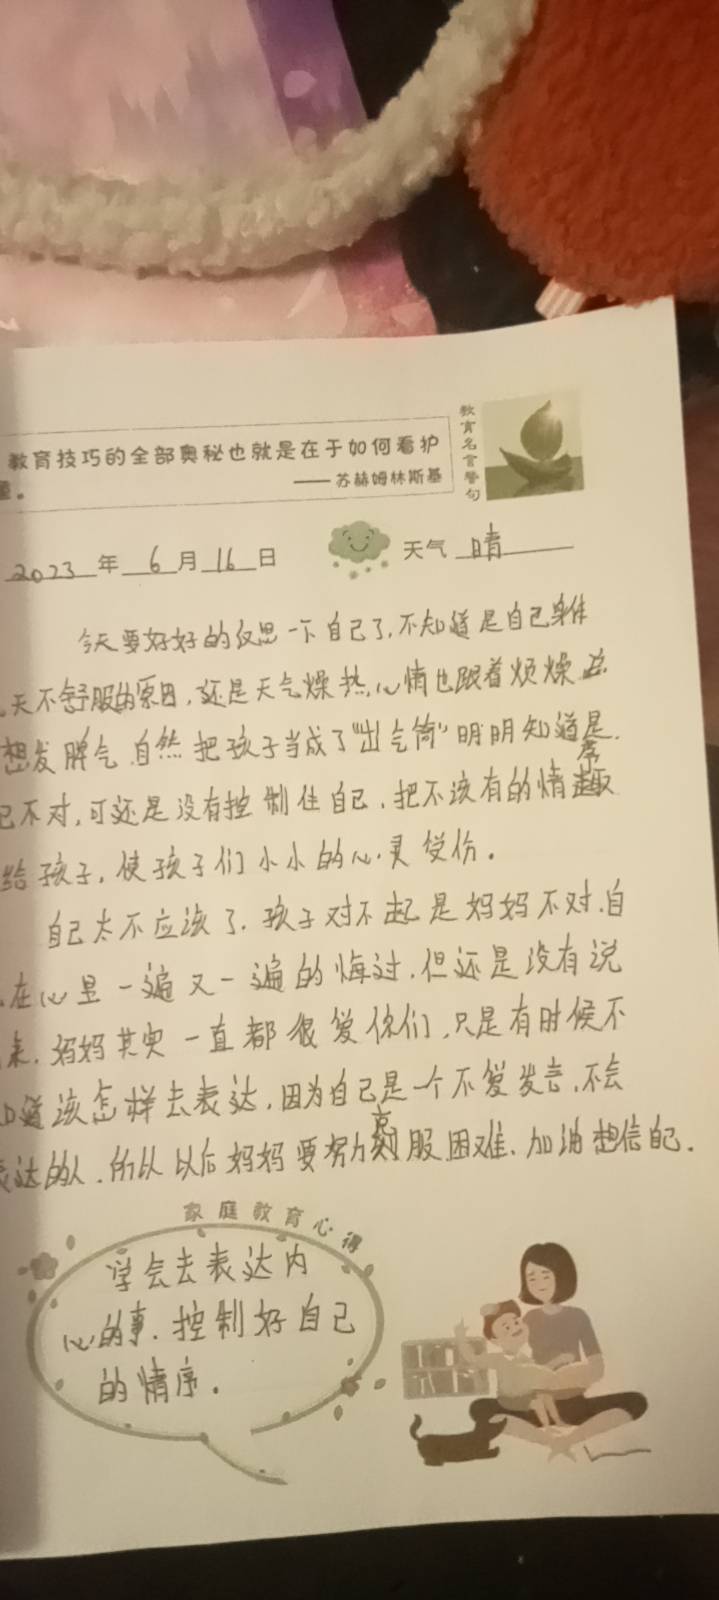 教育技巧的全部奥秘也就是在于如何看护
。
——苏赫姆林斯基
教育名言警句
2023年6月16日
天气 晴
今天要好好的反思一下自己了,不知道是自己身体
天不舒服的原因,还是天气燥热,心情也跟着烦燥
想发脾气.自然把孩子当成了“出气筒”明明知道是
己不对,可还是没有控制住自己.把不该有的情
给孩子,使孩子们小小的心灵受伤。
自己太不应该了.孩子对不起是妈妈不对.自
在心里一遍又一遍的悔过.但还是没有说
来.妈妈其实一直都很爱你们,只是有时候不
知道该怎样去表达,因为自己是一个不爱发言.不会
表达的人.所以以后妈妈要努力克服困难.加油想信自己.
家庭教育心得
学会去表达内
心的事.控制好自己
的情序。